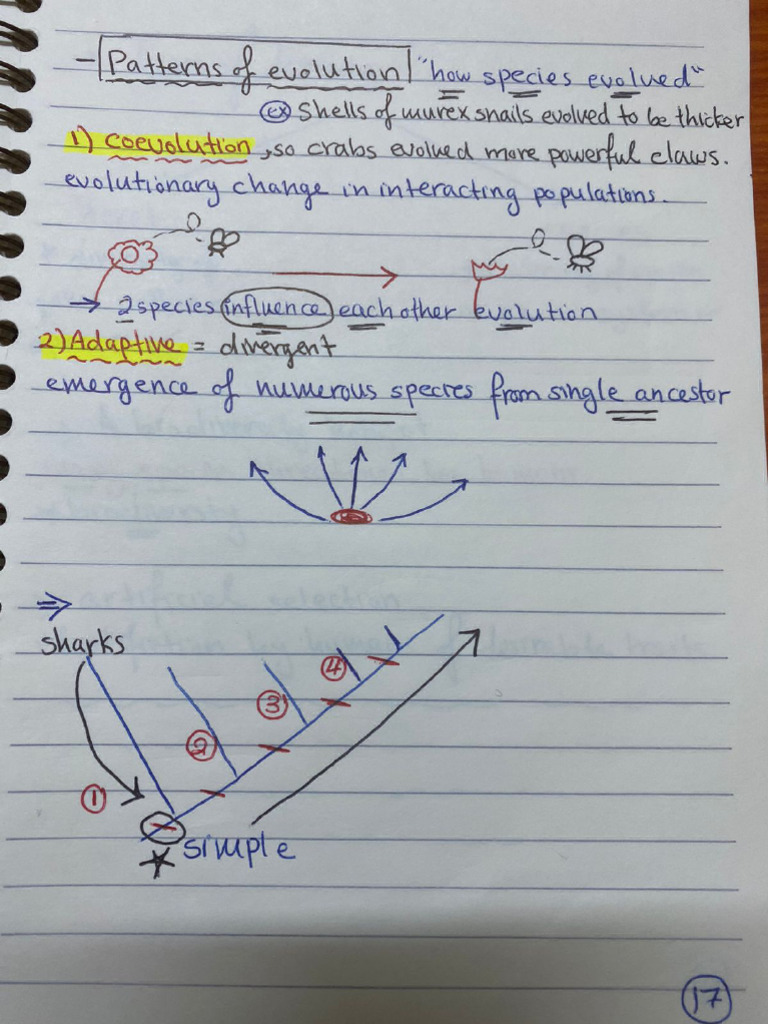 - Patterns of evolution "how species evolved"
ex Shells of murex snails evolved to be thicker
1) coevolution, so crabs evolved more powerful claws.
evolutionary change in interacting populations.
→ 2 species influence each other evolution
2) Adaptive = divergent
emergence of numerous species from single ancestor
⇒
sharks
④
③
②
①
simple
17